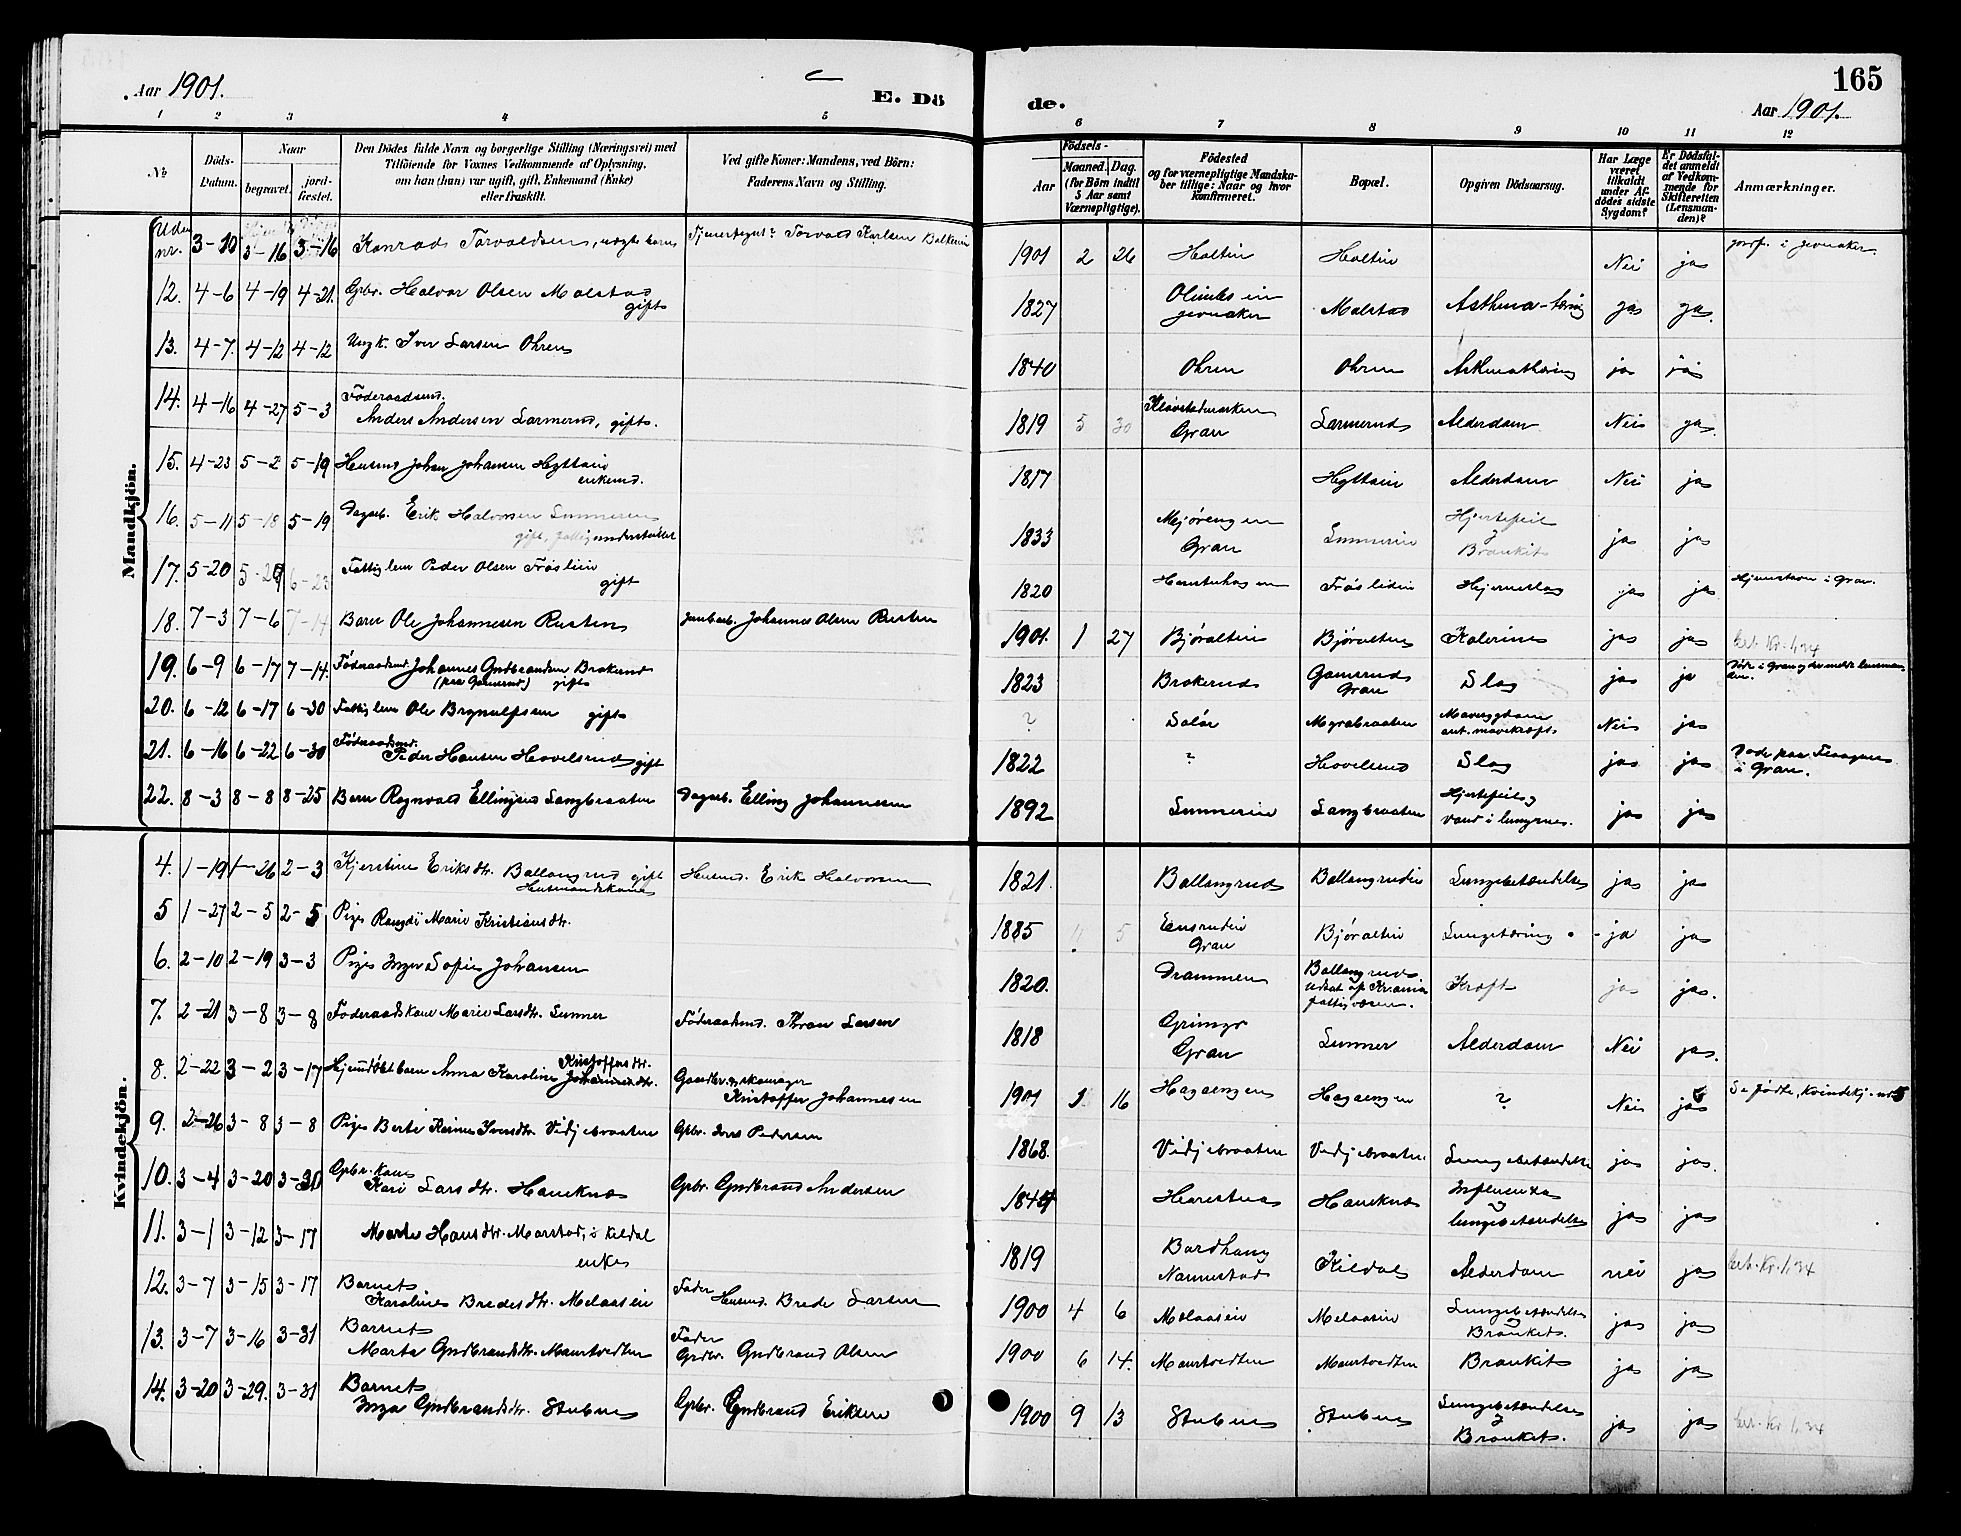 165
Aar 1901.
E. Döde.
Aar 1901.
1 2 3 4 5 6 7 8 9 10 11 12
No
Döds-Datum.
Naar
begravet.
jordfæstet.
Den Dödes fulde Navn og borgerlige Stilling (Næringsvei) med
Tilföiende for Voxnes Vedkommende af Oplysning,
om han (hun) var ugift, gift, Enkemand (Enke)
eller fraskilt.
Ved gifte Koner: Mandens, ved Börn:
Faderens Navn og Stilling.
Födsels-
Aar
Maaned. Dag.
(for Börn indtil
5 Aar samt
Værnepligtige).
Födested
og for værnepligtige Mandska-
ber tillige: Naar og hvor
konfirmeret.
Bopæl.
Opgiven Dödsaarsag.
Har Læge
været
tilkaldt
under Af-
dödes sidste
Sygdom?
Er Dödsfal-
det anmeldt
af Vedkom-
mende for
Skifteretten
(Lensman-
den)?
Anmærkninger.
Mandkjön.
Uden nr. 3-10 3-16 3-16 Konrad Torvaldsen, uægte barn Torvald Karlsen 1901 2 26 Nei ja jordf. i Jevnaker
12. 4-6 4-19 4-21. Gbr. Halvor Olsen Molstad gift 1827 Jevnaker Molstad ja ja.
13. 4-7. 4-12 4-12 Ungk. Iver Larsen Ohren 1840 Ohren Ohren ja ja
14. 4-16 4-27 5-3 Föderaadsmd. Anders Andersen Larmerud, gift. 1819 5 30 Gran Larmerud Alderdom Nei ja.
15. 4-23 5-2 5-19 Husmd Johan Johansen Hyttein enkemd. 1817 Hyttein Alderdom Nei ja
16. 5-11 5-18 5-19 Dagarb. Erik Halvorsen Lunnerein gift, fattigunderstöttet 1833 Gran Lunnerein Hjertefeil og Bronkit ja ja
17. 5-20 5-29 6-23 Fattiglem Peder Olsen Fröslien gift 1820 Fröslien Hjerneslag ja ja i Gran.
18. 7-3 7-6 7-14 Barn Ole Johannesen Rusten Jernbarb. Johannes Olsen Rusten 1901. 1 27 Björalten Björalten Kolerine ja ja
19. 6-9 6-17 7-14. Föderaadsmd. Johannes Gudbrandsen Brokerud gift 1823 Brokerud Gamerud Gran Slag ja ja
20. 6-12 6-17 6-30 Fattiglem Ole Brynulfsen gift ? Solör Myrabraaten ant. mavekræft Nei ja
21. 6-16 6-22 6-30 Föderaadsmd. Peder Hansen Hovelsrud gift 1822 ? Hovelsrud Slag ja ja Döde paa i Gran.
22. 8-3 8-8 8-25 Barn Ragnvald Ellingsen Langbraaten Dagarb. Elling Johannesen 1892 Lunnerein Langbraaten Hjertefeil og vand i lungerne. ja ja
Kvindekjön.
4. 1-19 1-26 2-3 Kjerstine Eriksdtr. Ballangrud gift Husmandskone Husmd. Erik Halvorsen 1821. Ballangrud Ballangrudein Lungebetændelse ja ja
5 1-27 2-5 2-5 Pige Randi Marie Kristiansdtr. 1885 4 5 Gran Björaltein Lungetæring ja ja
6. 2-10 2-19 3-3 Pige Inger Sofie Johansen 1820. Drammen Ballangrud udsat af Kr.ania fattigvæsen. Kræft ja ja.
7. 2-21 3-8 3-8 Föderaadskone Marie Larsdtr. Lunner Föderaadsmd. Thron Larsen 1818 Gran Lunner Alderdom Nei ja.
8. 2-22 3-2 3-17 Hjemdöbt barn Anna Karoline Kristoffersdtr. Gaardbr. og skomager Kristoffer Johannesen 1901 16 Hagaengen Hagaengen ? Nei ja Se födte, kvindekj. nr 5
9. 2-26 3-8 3-8 Pige Berte Karine Iversdtr. Vidjebraaten Gbr. Iver Pedersen 1868. Vidjebraaten Vidjebraaten Lungebetændelse ja ja.
10. 3-4 3-20 3-30 Gbr. Kone Kari Larsdtr. Haneknæ Gbr. Gudbrand Andersen Harestua Haneknæ Influenza og lungebetændelse ja ja
11. 3-1 3-12 3-17 Marte Hansdtr. Morstad, i Kildal enke 1819 Nannestad Kildal Alderdom nei ja
12. 3-7 3-15 3-17 Barnet Karoline Bredesdtr. Melaasein Fader Husmd. Brede Larsen 1900 4 6 Melaasein Melaasein Lungebetændelse og Bronkit. ja ja
13. 3-7 3-16 3-31 Barnet Marte Gudbrandsdtr. Maurtvedten Fader Grdbr. Gudbrand Olsen 1900 6 14. Maurtvedten Maurtvedten Bronkit ja ja
14. 3-20 3-29. 3-31 Barnet Inga Gudbrandsdtr. Stubne Gbr. Gudbrand Eriksen 1900 9 13 Stubne Stubne Lungebetændelse og Bronkit. ja ja